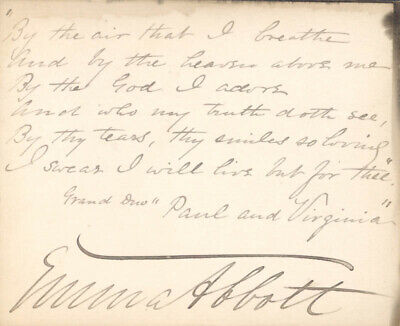 "By the air that I breathe
And by the heaven above me
By the God I adore
And who my truth doth see,
By thy tears, thy smiles so loving
I swear I will live but for thee".
Grand Duo "Paul and Virginia"
Emma Abbott